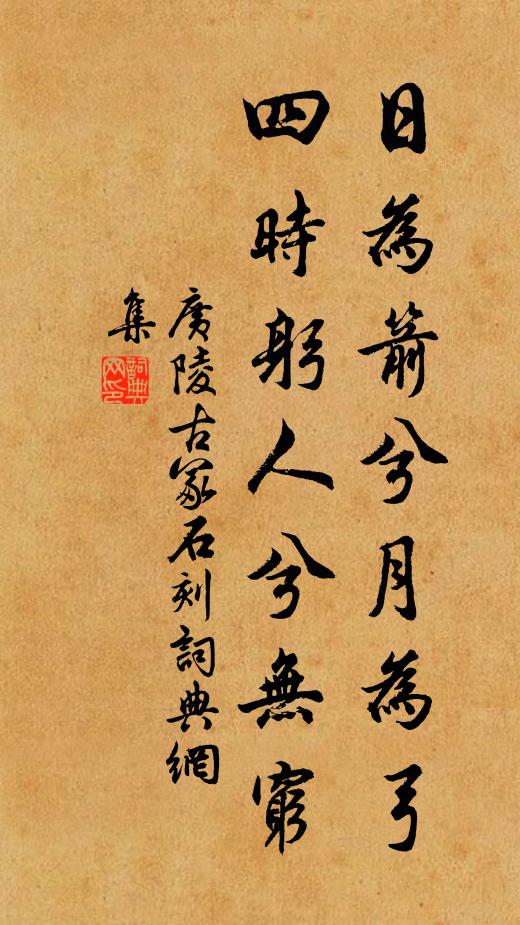 日為箭兮月為弓
四時躬人兮無窮
廣陵古冢石刻詞典網
集
詞典網印